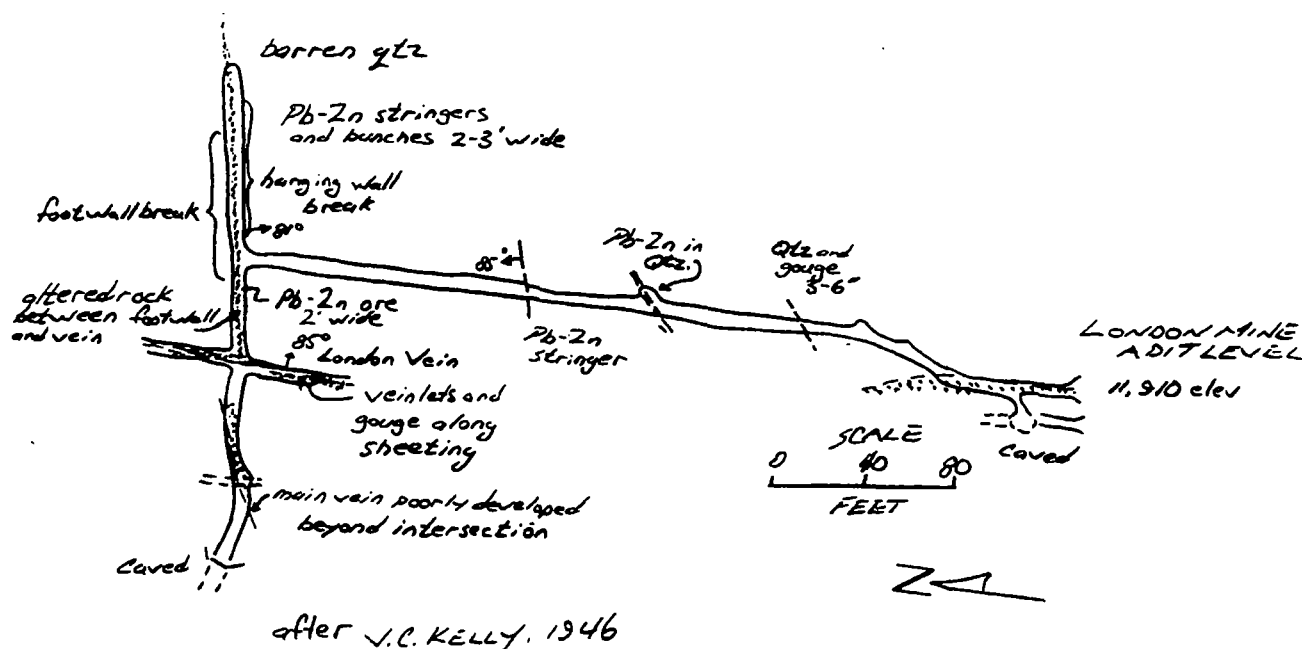 barren qtz
Pb-Zn stringers
and bunches 2-3' wide
hanging wall
break
footwall break
81°
85°
Pb-Zn in
Qtz.
Qtz and
gouge
3-6"
altered rock
between footwall
and vein
Pb-Zn ore
2' wide
85°
London Vein
Pb-Zn
stringer
LONDON MINE
ADIT LEVEL
11,910 elev
veinlets and
gouge along
sheeting
Caved
SCALE
0 40 80
FEET
main vein poorly developed
beyond intersection
Caved
N
after V.C. KELLY, 1946